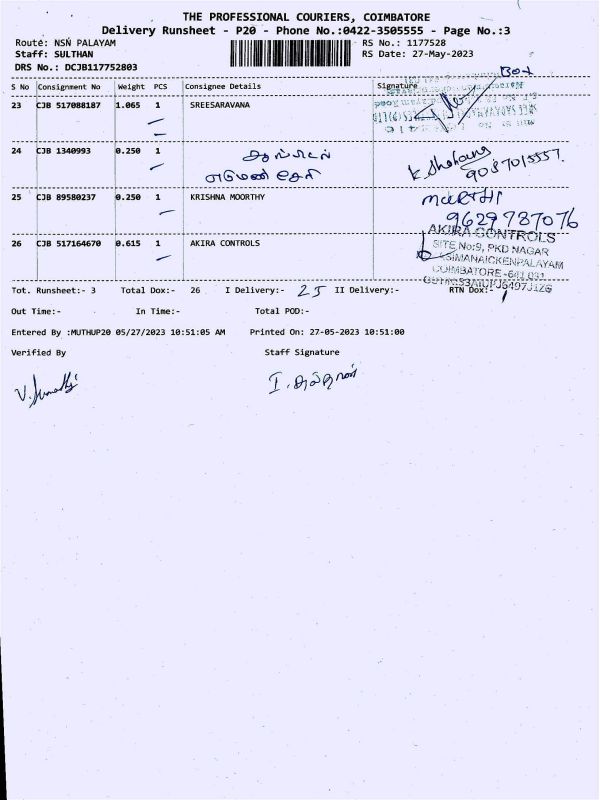 THE PROFESSIONAL COURIERS, COIMBATORE
Delivery Runsheet - P20 - Phone No.:0422-3505555 - Page No.:3
Route: NSN PALAYAM
RS No.: 1177528
Staff: SULTHAN
RS Date: 27-May-2023
DRS No.: DCJB117752803
BOX
S No Consignment No Weight PCS Consignee Details Signature
23 CJB 517088187 1.065 1 SREESARAVANA
24 CJB 1340993 0.250 1
9087015557.
25 CJB 89580237 0.250 1 KRISHNA MOORTHY
9629787076
26 CJB 517164670 0.615 1 AKIRA CONTROLS
AKIRA CONTROLS
SITE No:9, PKD NAGAR
COIMBATORE-641 031
Tot. Runsheet:- 3 Total Dox:- 26 I Delivery:- 25 II Delivery:- RTN Dox:- 1
Out Time:- In Time:- Total POD:-
Entered By :MUTHUP20 05/27/2023 10:51:05 AM Printed On: 27-05-2023 10:51:00
Verified By Staff Signature